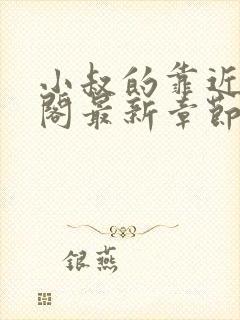 小叔的靠近
阁最新章节
银燕